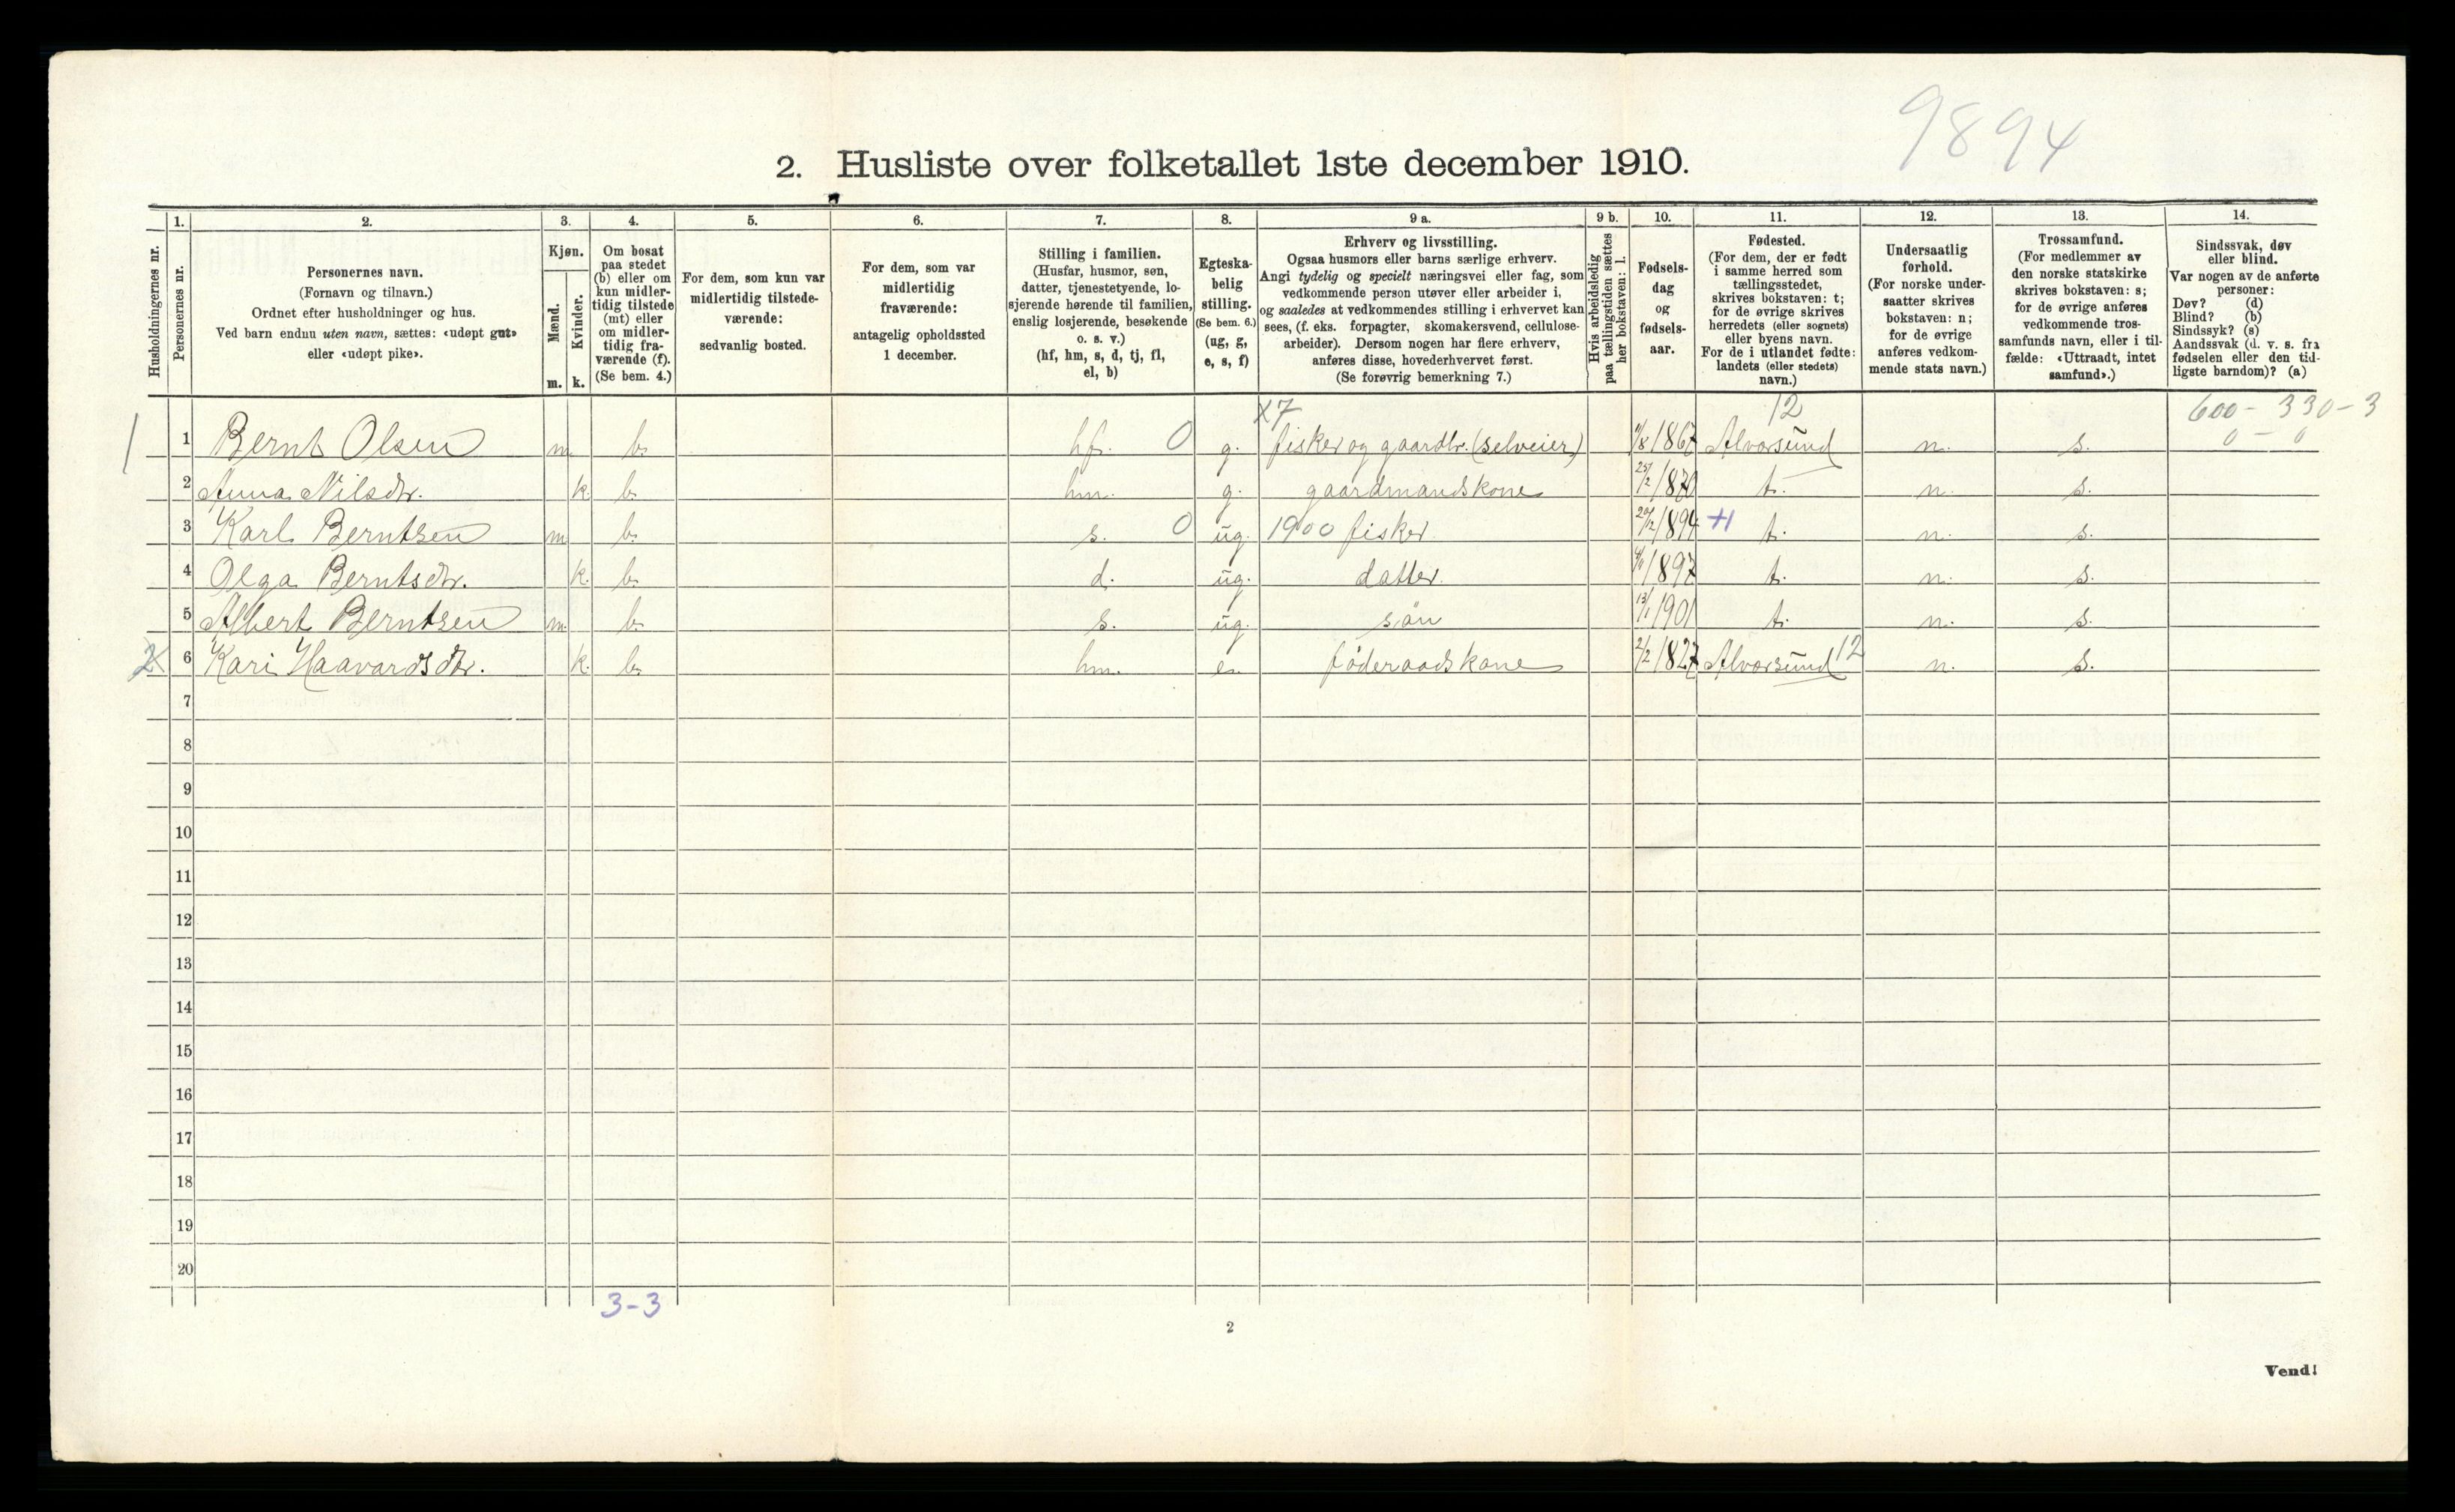 9894
2. Husliste over folketallet 1ste december 1910.
Husholdningernes nr.
1. Personernes nr.
2. Personernes navn. (Fornavn og tilnavn.) Ordnet efter husholdninger og hus. Ved barn endnu uten navn, sættes: «udøpt gut» eller «udøpt pike».
3. Kjøn. Mænd. m. Kvinder. k.
4. Om bosat paa stedet (b) eller om kun midlertidig tilstede (mt) eller om midlertidig fraværende (f). (Se bem. 4.)
5. For dem, som kun var midlertidig tilstedeværende: sedvanlig bosted.
6. For dem, som var midlertidig fraværende: antagelig opholdssted 1 december.
7. Stilling i familien. (Husfar, husmor, søn, datter, tjenestetyende, losjerende hørende til familien, enslig losjerende, besøkende o. s. v.) (hf, hm, s, d, tj, fl, el, b)
8. Egteskabelig stilling. (Se bem. 6.) (ug, g, e, s, f)
9 a. Erhverv og livsstilling. Ogsaa husmors eller barns særlige erhverv. Angi tydelig og specielt næringsvei eller fag, som vedkommende person utøver eller arbeider i, og saaledes at vedkommendes stilling i erhvervet kan sees, (f. eks. forpagter, skomakersvend, cellulosearbeider). Dersom nogen har flere erhverv, anføres disse, hovederhvervet først. (Se forøvrig bemerkning 7.)
9 b. Hvis arbeidsledig paa tællingstiden sættes her bokstaven: l.
10. Fødselsdag og fødselsaar.
11. Fødested. (For dem, der er født i samme herred som tællingsstedet, skrives bokstaven: t; for de øvrige skrives herredets (eller sognets) eller byens navn. For de i utlandet fødte: landets (eller stedets) navn.)
12. Undersaatlig forhold. (For norske undersaatter skrives bokstaven: n; for de øvrige anføres vedkommende stats navn.)
13. Trossamfund. (For medlemmer av den norske statskirke skrives bokstaven: s; for de øvrige anføres vedkommende trossamfunds navn, eller i tilfælde: «Uttraadt, intet samfund».)
14. Sindssvak, døv eller blind. Var nogen av de anførte personer: Døv? (d) Blind? (b) Sindssyk? (s) Aandssvak (d. v. s. fra fødselen eller den tidligste barndom)? (a)
X7 12 600 - 330 - 3
1 1 Bernt Olsen m b. hf. 0 g. fisker og gaardbr. (selveier) 1/8 1867 Alvorsund n. s. 0 - 0
2 Anna Nilsdtr. k b. hm. g. gaardmandskone 25/2 1870 t. n. s.
3 Karl Berntsen m b. s. 0 ug. 1900 fisker 1894 t. n. s.
4 Olga Berntsdtr. k. b. d. ug. datter 1897 t. n. s.
5 Albert Berntsen m. b. s. ug. søn 13/1 1901 t. n. s.
2 6 Kari Haavardsdtr. k. b. hm. e. föderaadskone 2/2 1827 Alvorsund 12 n. s.
7
8
9
10
11
12
13
14
15
16
17
18
19
20
3-3
2
Vend!